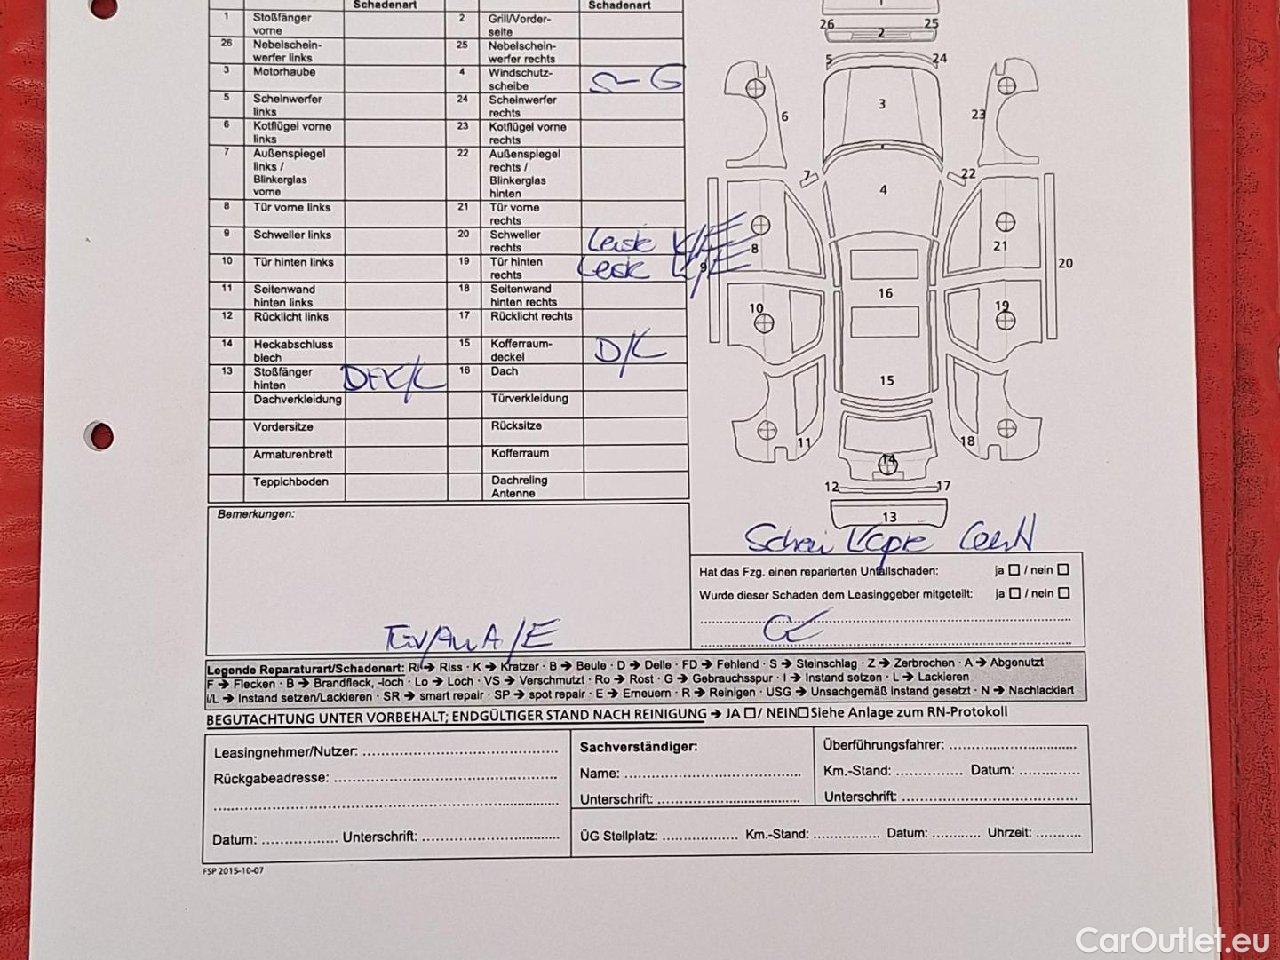 Schadenart Schadenart
1 Stoßfänger vorne 2 Grill/Vorder-seite
26 Nebelschein-werfer links 25 Nebelschein-werfer rechts
3 Motorhaube 4 Windschutz-scheibe S-G
5 Scheinwerfer links 24 Scheinwerfer rechts
6 Kotflügel vorne links 23 Kotflügel vorne rechts
7 Außenspiegel links / Blinkerglas vorne 22 Außenspiegel rechts / Blinkerglas hinten
8 Tür vorne links 21 Tür vorne rechts
9 Schweller links 20 Schweller rechts Leiste K/E
10 Tür hinten links 19 Tür hinten rechts Leiste K/E
11 Seitenwand hinten links 18 Seitenwand hinten rechts
12 Rücklicht links 17 Rücklicht rechts
14 Heckabschluss blech 15 Kofferraum-deckel D/L
13 Stoßfänger hinten D+K/L 16 Dach
Dachverkleidung Türverkleidung
Vordersitze Rücksitze
Armaturenbrett Kofferraum
Teppichboden Dachreling Antenne
1
26 25
2
5 24
3
6 23
7 22
4
8 21
9 20
16
10 19
15
11 18
14
12 17
13
Bemerkungen:
TÜV/AU A/E
Hat das Fzg. einen reparierten Unfallschaden: ja ☐ / nein ☐
Wurde dieser Schaden dem Leasinggeber mitgeteilt: ja ☐ / nein ☐
Legende Reparaturart/Schadenart: Ri → Riss · K → Kratzer · B → Beule · D → Delle · FD → Fehlend · S → Steinschlag Z → Zerbrochen · A → Abgenutzt
F → Flecken · B → Brandfleck, -loch · Lo → Loch · VS → Verschmutzt · Ro → Rost · G → Gebrauchsspur · I → Instand setzen · L → Lackieren
I/L → Instand setzen/Lackieren · SR → smart repair · SP → spot repair · E → Erneuern · R → Reinigen · USG → Unsachgemäß instand gesetzt · N → Nachlackiert
BEGUTACHTUNG UNTER VORBEHALT; ENDGÜLTIGER STAND NACH REINIGUNG → JA ☐ / NEIN☐ Siehe Anlage zum RN-Protokoll
Leasingnehmer/Nutzer: Sachverständiger: Überführungsfahrer:
Rückgabeadresse: Name: Km.-Stand: Datum:
Unterschrift: Unterschrift:
Datum: Unterschrift: ÜG Stellplatz: Km.-Stand: Datum: Uhrzeit:
FSP 2015-10-07
CarOutlet.eu